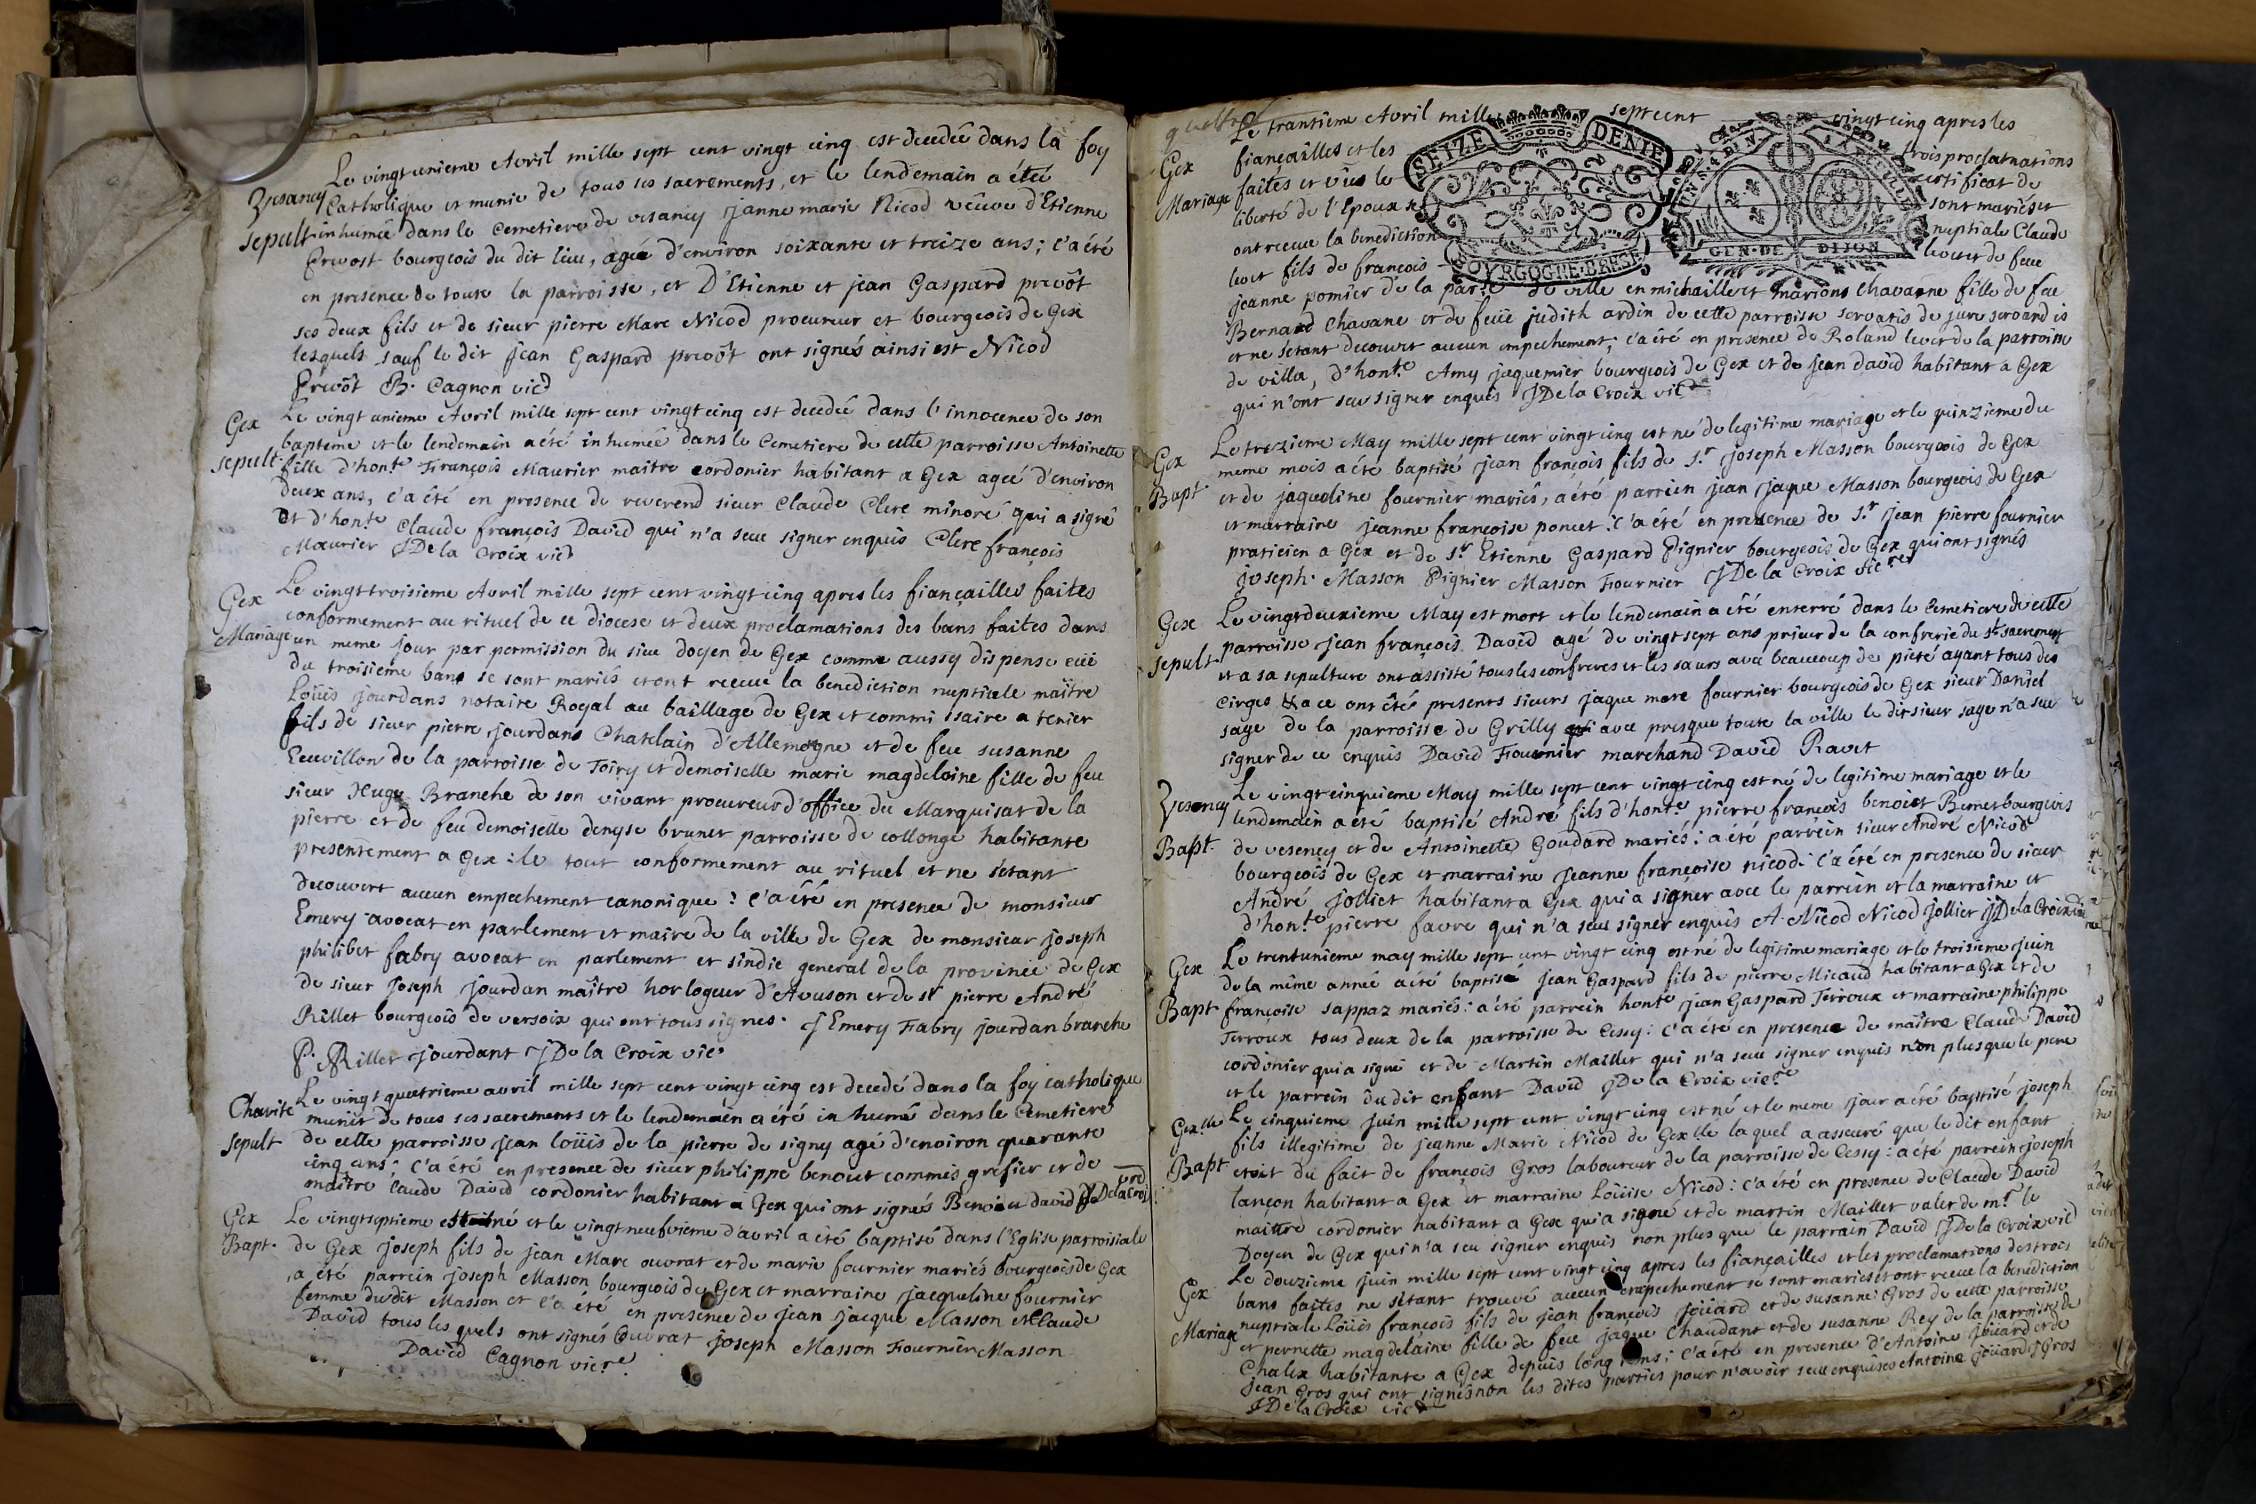 Le vingt unieme Avril mille sept cent vingt cinq est decedée dans la foy
Vesancy Catholique et munie de tous ses sacrements, et le lendemain a étéé
sepult inhumée dans le Cemetiere de vesancy Janne marie Nicod veûve d'Etienne
Prevost bourgeois du dit lieu, agée d'environ soixante et treize ans; c'a été
en presence de toute la parroisse, et D'Etienne et jean Gaspard prevôt
ses deux fils et de sieur pierre Marc Nicod procureur et bourgeois de Gex
lesquels sauf le dit Jean Gaspard prevôt ont signés ainsi est Nicod
Prevôt B. Cagnon vic
Gex Le vingt unieme Avril mille sept cent vingt cinq est decedée dans l'innocence de son
bapteme et le lendemain a été inhumée dans le Cemetiere de cette parroisse Antoinette
sepult fille d'hon.te François Maurier maitre cordonier habitant a Gex ageé d'environ
deux ans, c'a été en presence de reverend sieur Claude Clerc minoré qui a signé
et d'hon.te Claude françois David qui n'a seu signer enquis Clerc françois
Maurier JDe la Croix vic
Gex Le vingt troisieme Avril mille sept cent vingt cinq apres les fiançailles faites
conformement au rituel de ce diocese et deux proclamations des bans faites dans
Mariage un meme jour par permission du sieu doyen de Gex comme aussy dispense eüe
du troisieme bans se sont mariés et ont receue la benediction nuptiale maître
Loüis jourdans notaire Royal au baillage de Gex et commissaire a terier
fils de sieur pierre Jourdans Chatelain d'Allemogne et de feue susanne
Levvillon de la parroisse de Toiry et demoiselle marie magdeloine fille de feu
sieur Hugue Branche de son vivant procureur d'office du Marquisat de la
pierre et de feu demoiselle denyse brunet parroisse de collonge habitante
presentement a Gex: le tout conformement au rituel et ne s'étant
decouvert aucun empechement canonique: c'a été en presence de monsieur
Emery avocat en parlement et maire de la ville de Gex de monsieur joseph
philibet fabry avocat en parlement et sindic general de la province de Gex
de sieur Joseph Jourdan maître horlogeur d'Avouson et de sr pierre André
Rillet bourgeois de versoix qui ont tous signés. J Emery Fabry jourdan branche
P. Rillet Jourdant JDe la Croix vic
Charite Le vingt quatrieme avril mille sept cent vingt cinq est decedé dans la foy catholique
munit de tous ses sacrements et le lendemain a été inhumé dans le Cemetiere
sepult de cette parroisse jean loüis de la pierre de signy agé d'environ quarante
cinq ans; c'a été en presence de sieur philippe benoit commis grefier et de
maître Claude David cordonier habitant a Gex qui ont signés Benoit David JDelaCroix
Gex Le vingtseptieme est né et le vingt neufvieme d'avril a été baptisé dans l'Eglise parroisiale
Bapt. de Gex joseph fils de jean Marc ouvrat et de marie fournier mariés bourgeois de Gex
a été parrein joseph Masson bourgeois de Gex et marraine jacqueline fournier
femme du dit Masson et c'a été en presence de jean jacque Masson et Claude
David tous les quels ont signés Ouvrat joseph Masson Fournier Masson
David Cagnon vic.re
Le trantieme Avril mille sept cent vingt cinq apres les
Gex fiançailles et les trois proclamations
Mariage faites et vüs le certificat de
liberté de l'Epoux se sont mariés et
ont receue la benediction nuptiale Claude
levet fils de françois levet et de feue
SEIZE DENIE
BOVRGOGNE·BRESE
GEN·DE DIJON
jeanne pomier de la par.se de ville en michaille et marions chavanne fille de feu
Bernard Chavane et de feüe judith ardin de cette parroisse servatis de jure servandis
et ne setant decouvert aucun empechement; c'a été en presence de Roland levet de la parroisse
de villa, d'hon.te Amy jaquemier bourgeois de Gex et de Jean david habitant a Gex
qui n'ont seu signer enquis JDe la Croix vic
Gex Le trezieme May mille sept cent vingt cinq est né de legitime mariage et le quinzieme du
meme mois a été baptisé jean françois fils de s.r joseph Masson bourgeois de Gex
Bapt et de jaqueline fournier mariés, a été parrien jean jaque Masson bourgeois de Gex
et marraine jeanne françoise poncet: c'a été en presence de s.r jean pierre fournier
praticien a Gex et de s.r Etienne Gaspard Pignier bourgeois de Gex qui ont signés
joseph. Masson Pignier Masson Fournier JDe la Croix vic.re
Gex Le vingt deuxieme May est mort et le lendemain a été enterré dans le Cemetiere de cette
parroisse jean françois David agé de vingt sept ans prieur de la confrerie du st sacrement
sepult et a sa sepulture ont assisté tous les confreres et les sœurs avec beaucoup de pieté ayant tous des
cirges & a ce ont êtés presents sieurs jaque more fournier bourgeois de Gex sieur Daniel
sage de la parroisse de Grilly avec presque toute la ville le dit sieur sage n'a seu
signer de ce enquis David Fournier marchand David Ravet
Vesency Le vingt cinquieme May mille sept cent vingt cinq est né de legitime mariage et le
lendemain a été baptisé André fils d'hon.te pierre françois benoict Bernet bourgeois
Bapt. de vesency et de Antoinette Goudard mariés: a été parrein sieur André Nicod
bourgeois de Gex et marraine Jeanne françoise nicod. c'a été en presence de sieur
André Jolliet habitant a Gex qui a signer avec le parrein et la marraine et
d'hon.te pierre favre qui n'a seu signer enquis A. Nicod Nicod Jolliet JDelaCroix vic
Gex Le trentunieme may mille sept cent vingt cinq est né de legitime mariage et le troisieme juin
de la même année a été baptisé jean Gaspard fils de pierre Micaud habitant a Gex et de
Bapt françoise sappaz mariés: a été parrein hon.te jean Gaspard Terroux et marraine philippe
Terroux tous deux de la parroisse de Cessy: c'a été en presence de maître Claude David
cordonier qui a signé et de Martin Mailler qui n'a seue signer enquis non plus que le pere
et le parrein du dit enfant David JDe la Croix vic.re
Gex.lle Le cinquieme juin mille sept cent vingt cinq est né et le meme jour a été baptisé joseph
fils illegitime de jeanne Marie Nicod de Gex.lle la quel a asseuré que le dit enfant
Bapt etoit du fait de françois Gros laboureur de la parroisse de Cessy: a été parrein joseph
lançon habitant a Gex et marraine Loüise Nicod: c'a été en presence de Claude David
maitre cordonier habitant a Gex qui a signé et de martin Mailler valet de m.r le
Doyen de Gex qui n'a seu signer enquis non plus que le parrain David JDe la Croix vic
Gex Le douzieme juin mille sept cent vingt cinq apres les fiançailles et les proclamations des trois
bans faites ne s'étant trouvé aucun empechement se sont mariés et ont receue la benediction
Mariage nuptiale Loüis françois fils de jean françois joüard et de susanne Gros de cette parroisse
et pernette magdelaine fille de feu jaque Chaudant et de susanne Rey de la parroisse de
Chalex habitante a Gex depuis long tems; c'a été en presence d'Antoine joüard et de
jean Gros qui ont signés non les dites parties pour n'avoir seu enquises Antoine joüard J Gros
JDe la Croix vic